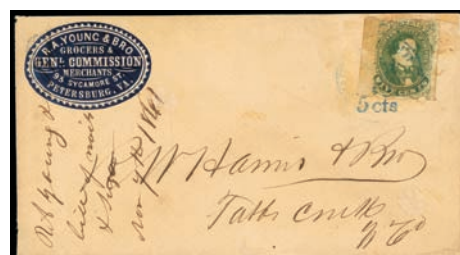 R.A. YOUNG & BRO.
GROCERS &
GENL. COMMISSION
MERCHANTS
95 SYCAMORE ST.
PETERSBURG, VA
5 cts
R A Young &
& Sugar
Nov 1861
W Harris & Bro
Tabbs Creek
N Co